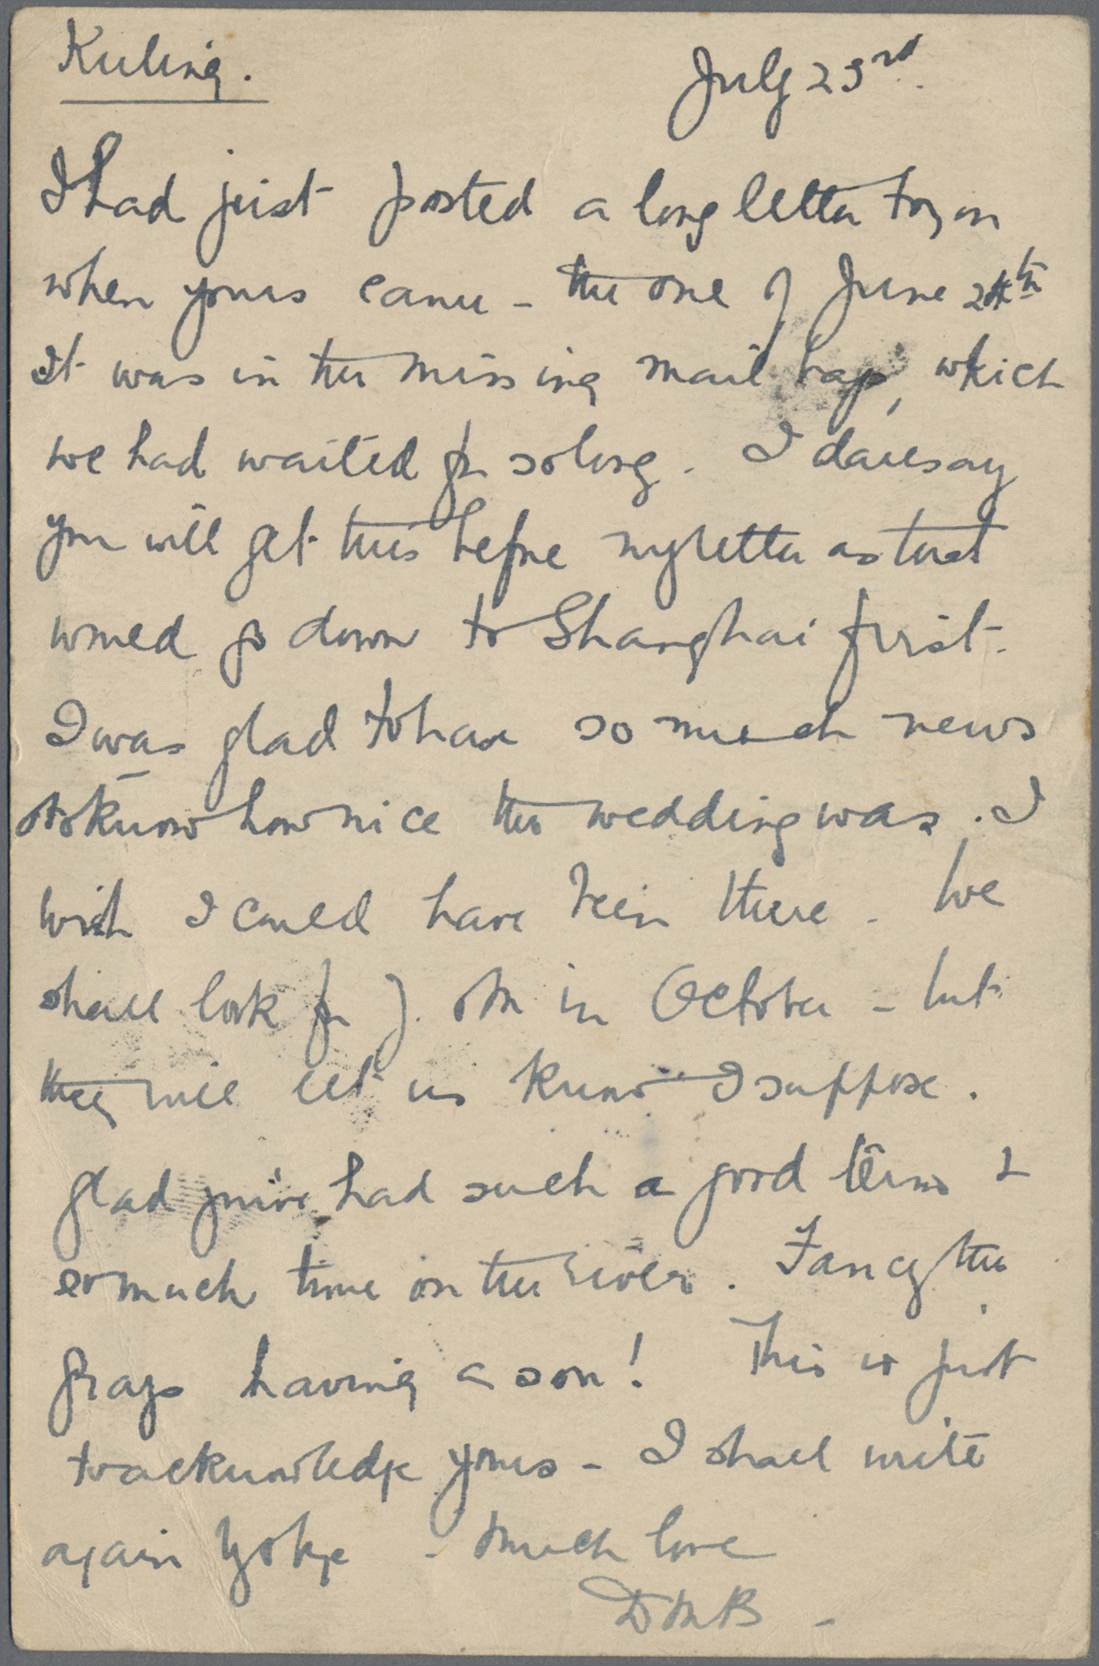 Kuling.
July 23rd.
I had just posted a long letter to you
when yours came - the one of June 24th
It was in the missing mail bag, which
we had waited for so long. I daresay
you will get this before my letter as that
would go down to Shanghai first.
I was glad to have so much news
& to know how nice the wedding was. I
wish I could have been there - We
shall look for J. in October - but
they will let us know I suppose.
glad you've had such a good term &
so much time on the river. Fancy the
Grays having a son! This is just
to acknowledge yours - I shall write
again - much love
DMB -